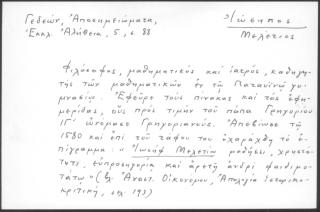 Γεδεών, Ἀποσημειώματα,
Ἐκκλ. Ἀλήθεια, 5, σ. 88
Ἰώσηπος
Μελέτιος
Φιλόσοφος, μαθηματικὸς καὶ ἰατρός, καθηγη-
τὴς τῶν μαθηματικῶν ἐν τῷ Παταυίνῳ γυ-
μνασίῳ. Ἐφεῦρε τοὺς πίνακας καὶ τὰς ἐφη-
μερίδας, οὓς πρὸς τιμὴν τοῦ πάπα Γρηγορίου
ΙΓ′ ὠνόμασε Γρηγοριανούς. Ἀπέθανε τῷ
1580 καὶ ἐπὶ τοῦ τάφου του ἐχαράχθη τὸ ἐ-
πίγραμμα: "Ἰωσὴφ Μελετίῳ μαθήσει, χρηστό-
τητι, εὐπροσηγορίᾳ καὶ ἀρετῇ ἀνδρὶ φαιδιμο-
τάτῳ" (βλ. Ἀναστ. Οἰκονόμου, Ἀπολογία ἱστορικο-
κριτική, σελ. 193)